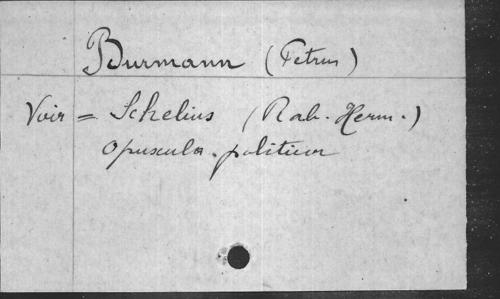 Burmann (Petrus)
Voir = Schelius (Rab. Herm.)
Opuscula politica